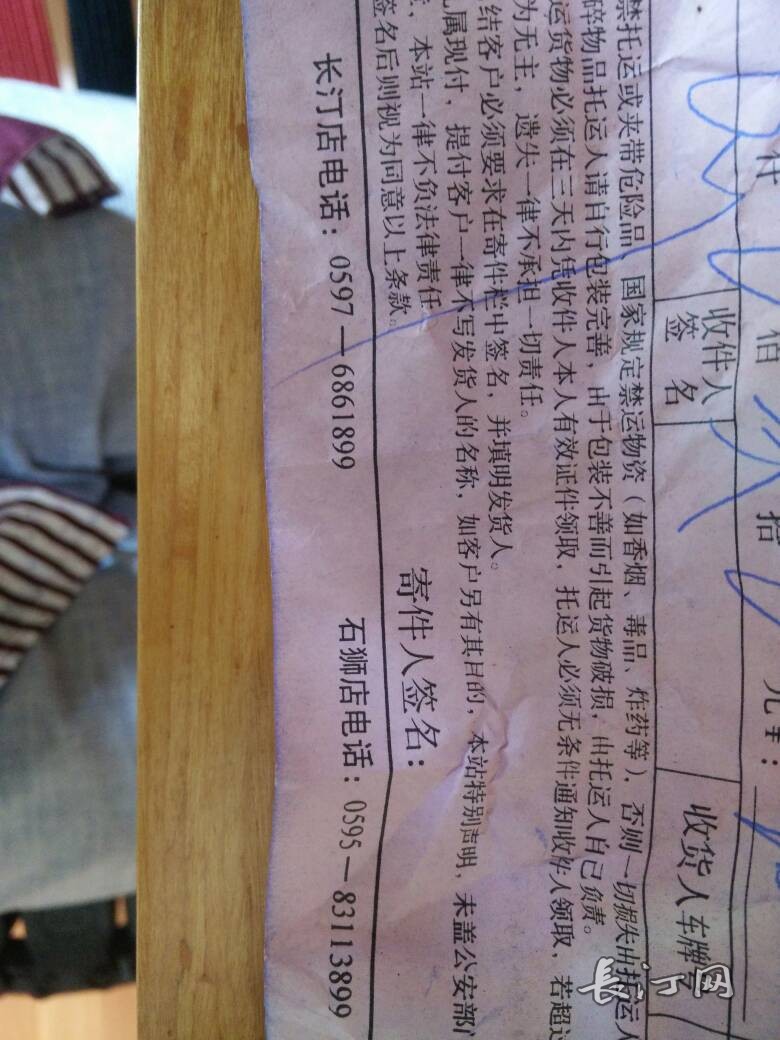 付 佰 拾 元￥：
收件人签名 收货人车牌
禁托运或夹带危险品、国家规定禁运物资（如香烟、毒品、炸药等），否则一切损失由托运人
碎物品托运人请自行包装完善，由于包装不善而引起货物破损，由托运人自己负责。
运货物必须在三天内凭收件人本人有效证件领取，托运人必须无条件通知收件人领取，若超过
为无主，遗失一律不承担一切责任。
结客户必须要求在寄件栏中签名，并填明发货人。
属现付，提付客户一律不写发货人的名称，如客户另有其目的，本站特别声明，未盖公安部门
，本站一律不负法律责任
签名后则视为同意以上条款。
寄件人签名：
长汀店电话：0597—6861899 石狮店电话：0595—83113899
长汀网